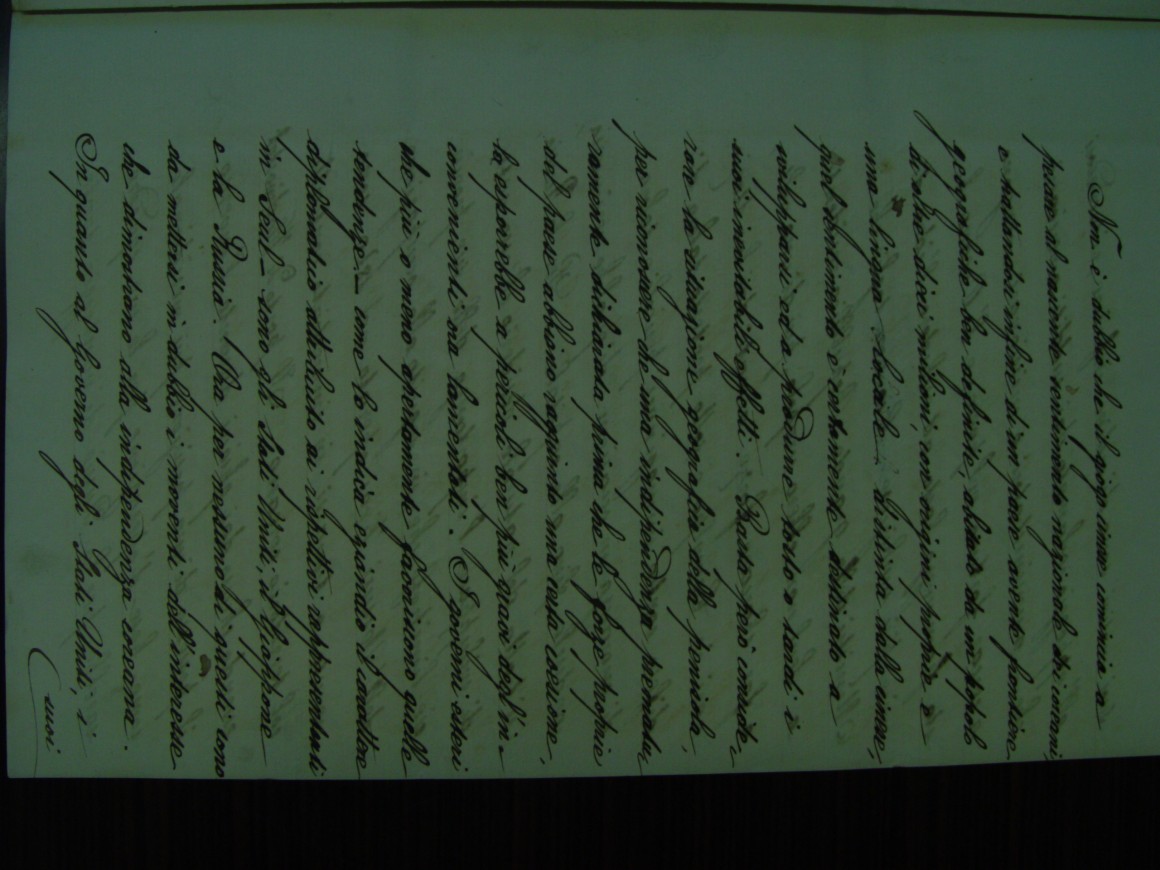 Non è dubbio che il giogo cinese comincia a
pesare al nascente sentimento nazionale dei coreani,
e trattandosi infine d'un paese avente frontiere
geografiche ben definite, abitato da un popolo
di oltre dieci milioni, con origini proprie e
una lingua locale distinta dalla cinese,
quel sentimento è certamente destinato a
svilupparsi ed a produrre tosto o tardi i
suoi inevitabili effetti. Basta però conside_
rare la situazione geografica della penisola,
per ricondere che una indipendenza prematu_
ramente dichiarata prima che le forze proprie
del paese abbiano raggiunto una certa coesione,
la esporrebbe a pericoli ben più gravi degl'in_
convenienti ora lamentati. I governi esteri
che più o meno apertamente favoriscono quelle
tendenze _ come lo indica eziandio il carattere
diplomatico attribuito ai rispettivi rappresentanti
in Seul _ sono gli Stati Uniti, il Giappone
e la Russia. Ora per nessuno di questi sono
da mettersi in dubbio i moventi dell'interesse
che dimostrano alla indipendenza coreana.
In quanto al Governo degli Stati Uniti, i
suoi